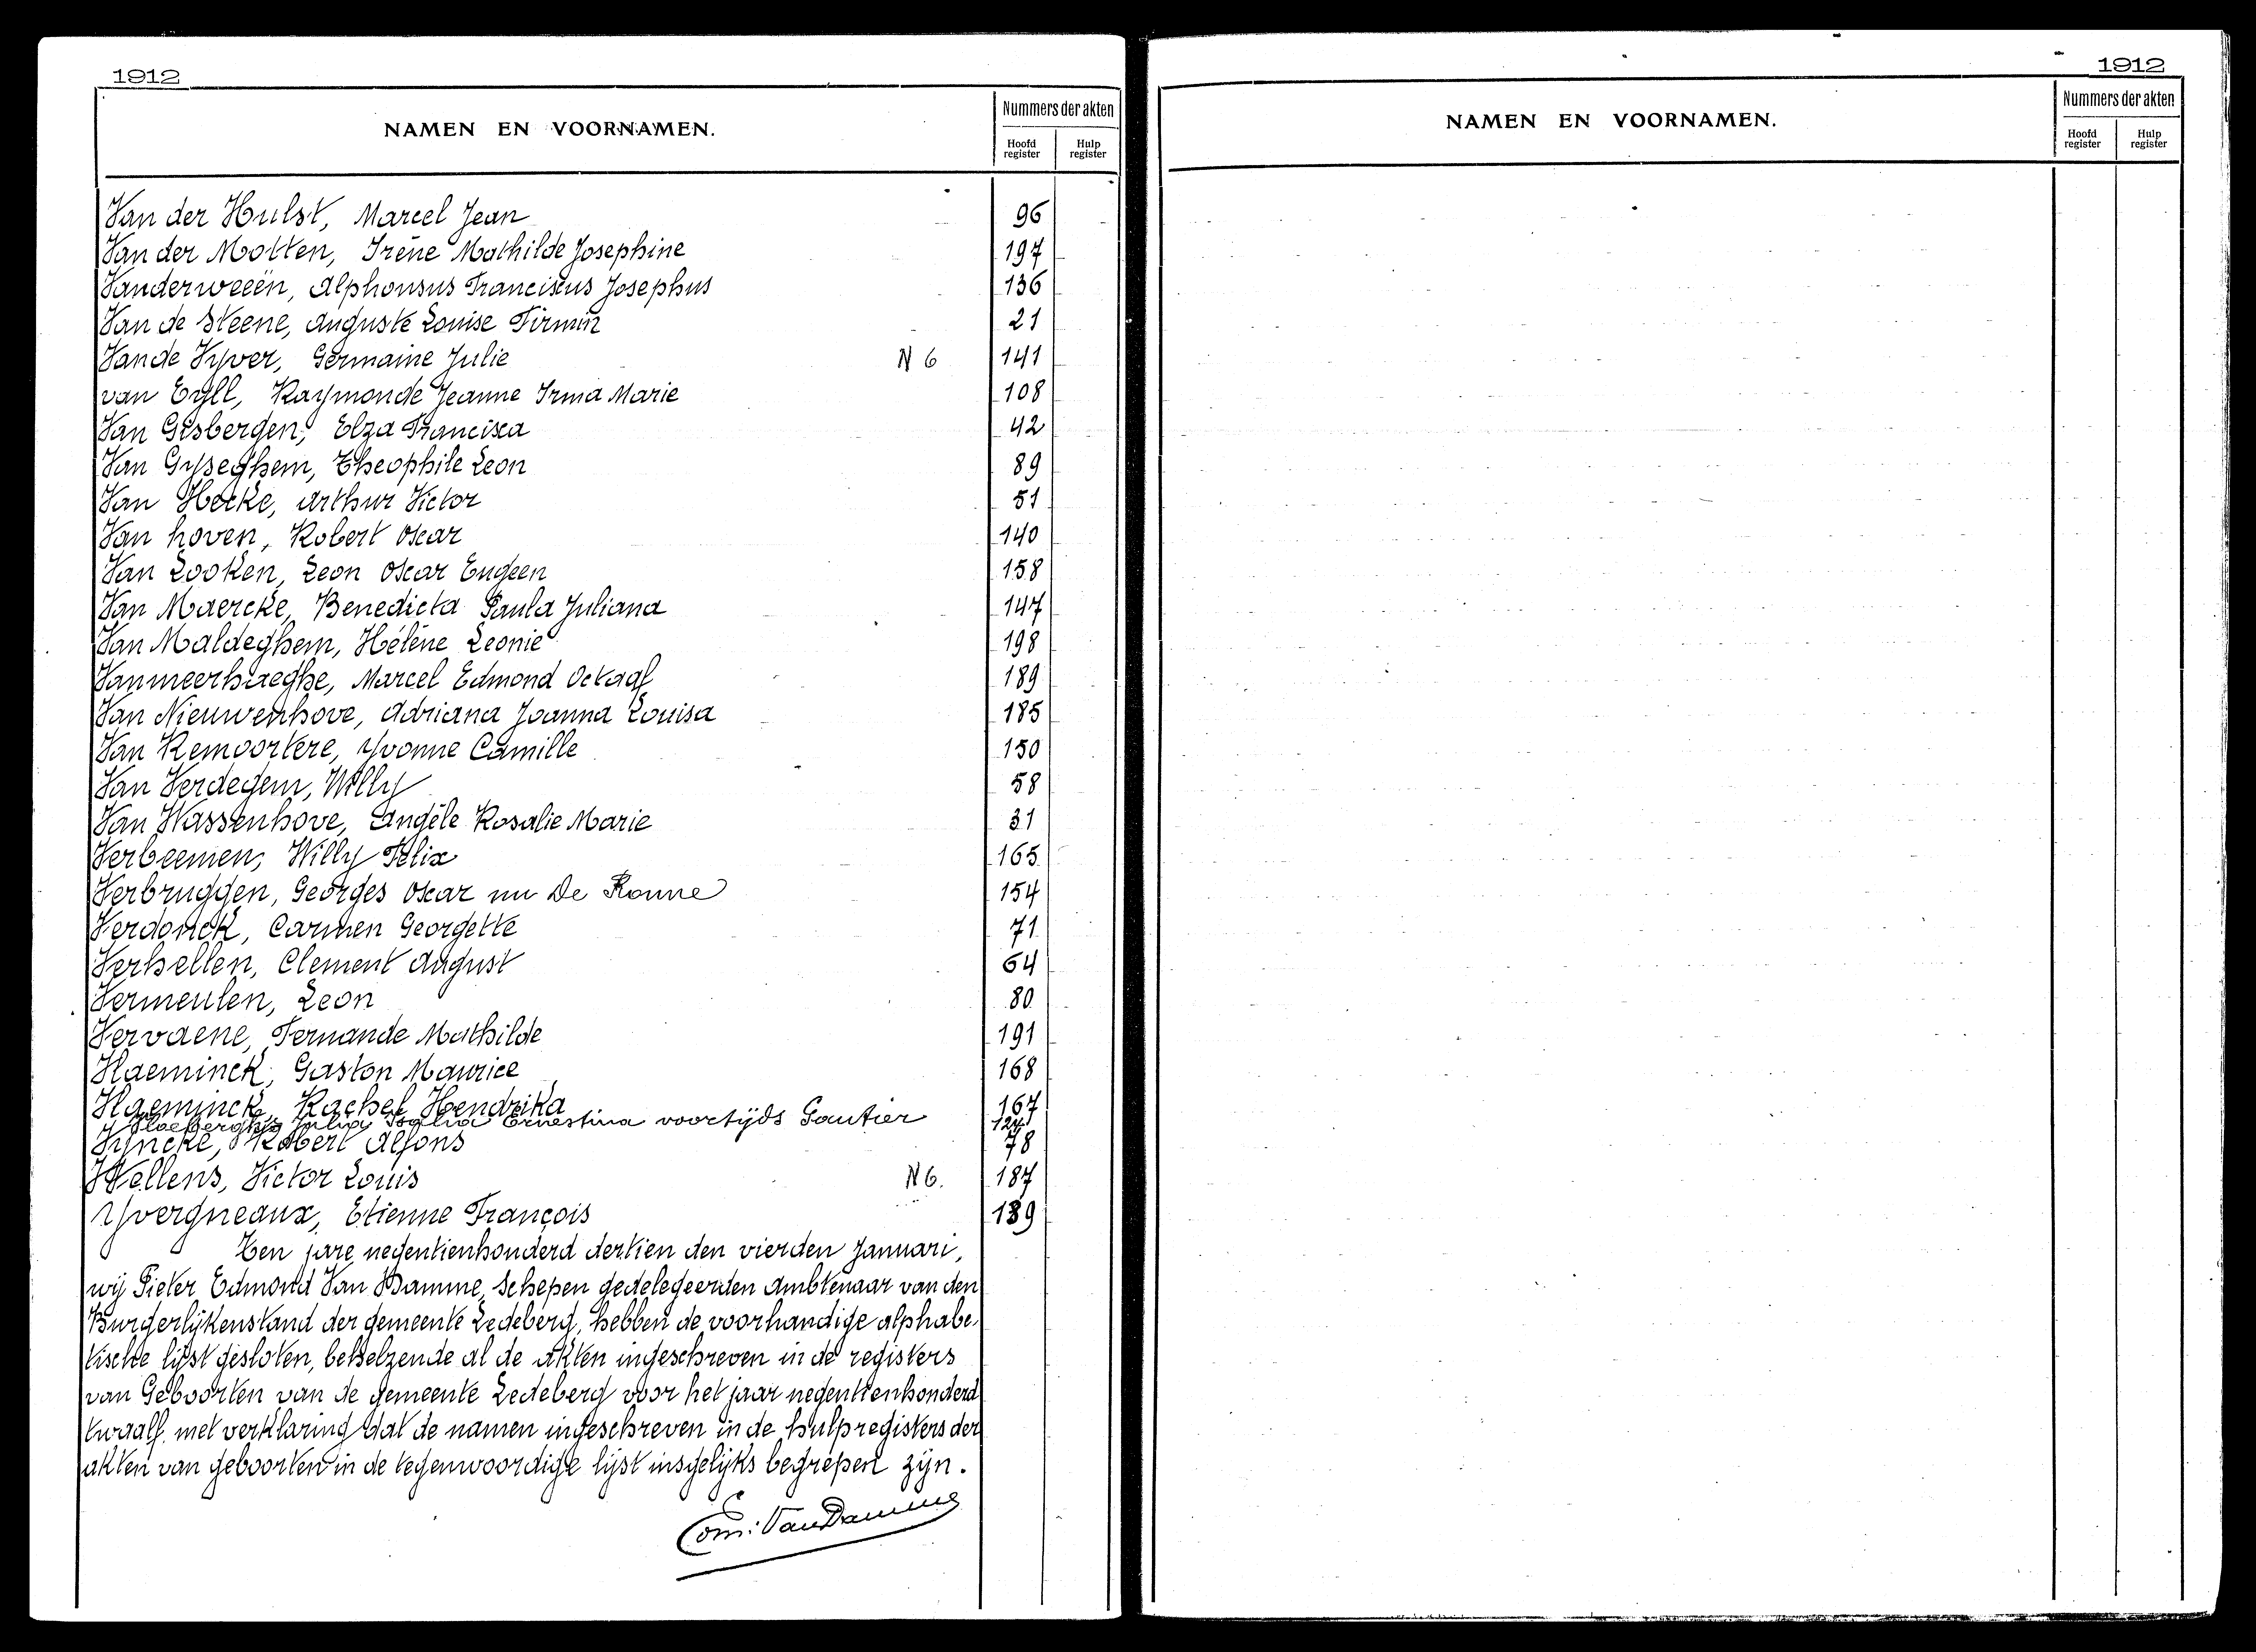 1912
NAMEN EN VOORNAMEN.
Nummers der akten
Hoofd register
Hulp register
Van der Hulst, Marcel Jean 96
Van der Motten, Irène Mathilde Josephine 197
Vanderweeën, Alphonsus Franciscus Josephus 136
Van de Steene, Auguste Louise Firmin 21
Van de Vyver, Germaine Julie N 6 141
van Eyll, Raymonde Jeanne Irma Marie 108
Van Gisbergen, Elza Francisca 42
Van Gyseghem, Theophile Leon 89
Van Hecke, Arthur Victor 51
Van hoven, Robert Oscar 140
Van Looken, Leon Oscar Eugeen 158
Van Maercke, Benedicta Paula Juliana 147
Van Maldeghem, Hélène Leonie 198
Vanmeerhaeghe, Marcel Edmond Octaaf 189
Van Nieuwenhove, Adriana Joanna Louisa 185
Van Remoortere, Yvonne Camille 150
Van Verdegem, Willy 58
Van Wassenhove, Angèle Rosalie Marie 31
Verbeemen, Willy Felix 165
Verbruggen, Georges Oscar nu De Ronne 154
Verdonck, Carmen Georgette 71
Verhellen, Clement August 64
Vermeulen, Leon 80
Vervaene, Fernande Mathilde 191
Vlaeminck, Gaston Maurice 168
Vlaeminck, Rachel Hendrika 167
Julia Ernestina voortijds Gautier
Vyncke, Robert Alfons 78
Wellens, Victor Louis N 6. 187
Yvergneaux, Etienne François 139
Ten jare negentienhonderd dertien den vierden Januari,
wij Pieter Edmond Van Damme, Schepen gedelegeerden Ambtenaar van den
Burgerlijkenstand der gemeente Ledeberg, hebben de voorhandige alphabe-
tische lijst gesloten, behelzende al de akten ingeschreven in de registers
van Geboorten van de gemeente Ledeberg voor het jaar negentienhonderd
twaalf, met verklaring dat de namen ingeschreven in de hulpregisters der
akten van geboorten in de tegenwoordige lijst insgelijks begrepen zijn.
Edm: Van Damme
1912
NAMEN EN VOORNAMEN.
Nummers der akten
Hoofd register
Hulp register